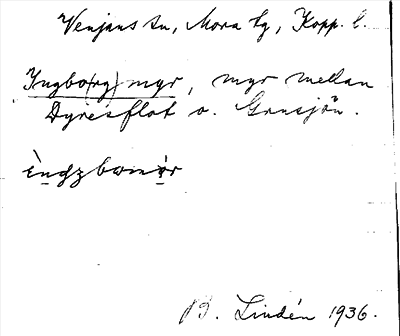 Venjans sn, Mora tg, Kopp. l.
Ingbo(rg)myr, myr mellan
Dyresflot o. Gransjön.
B. Lindén 1936.